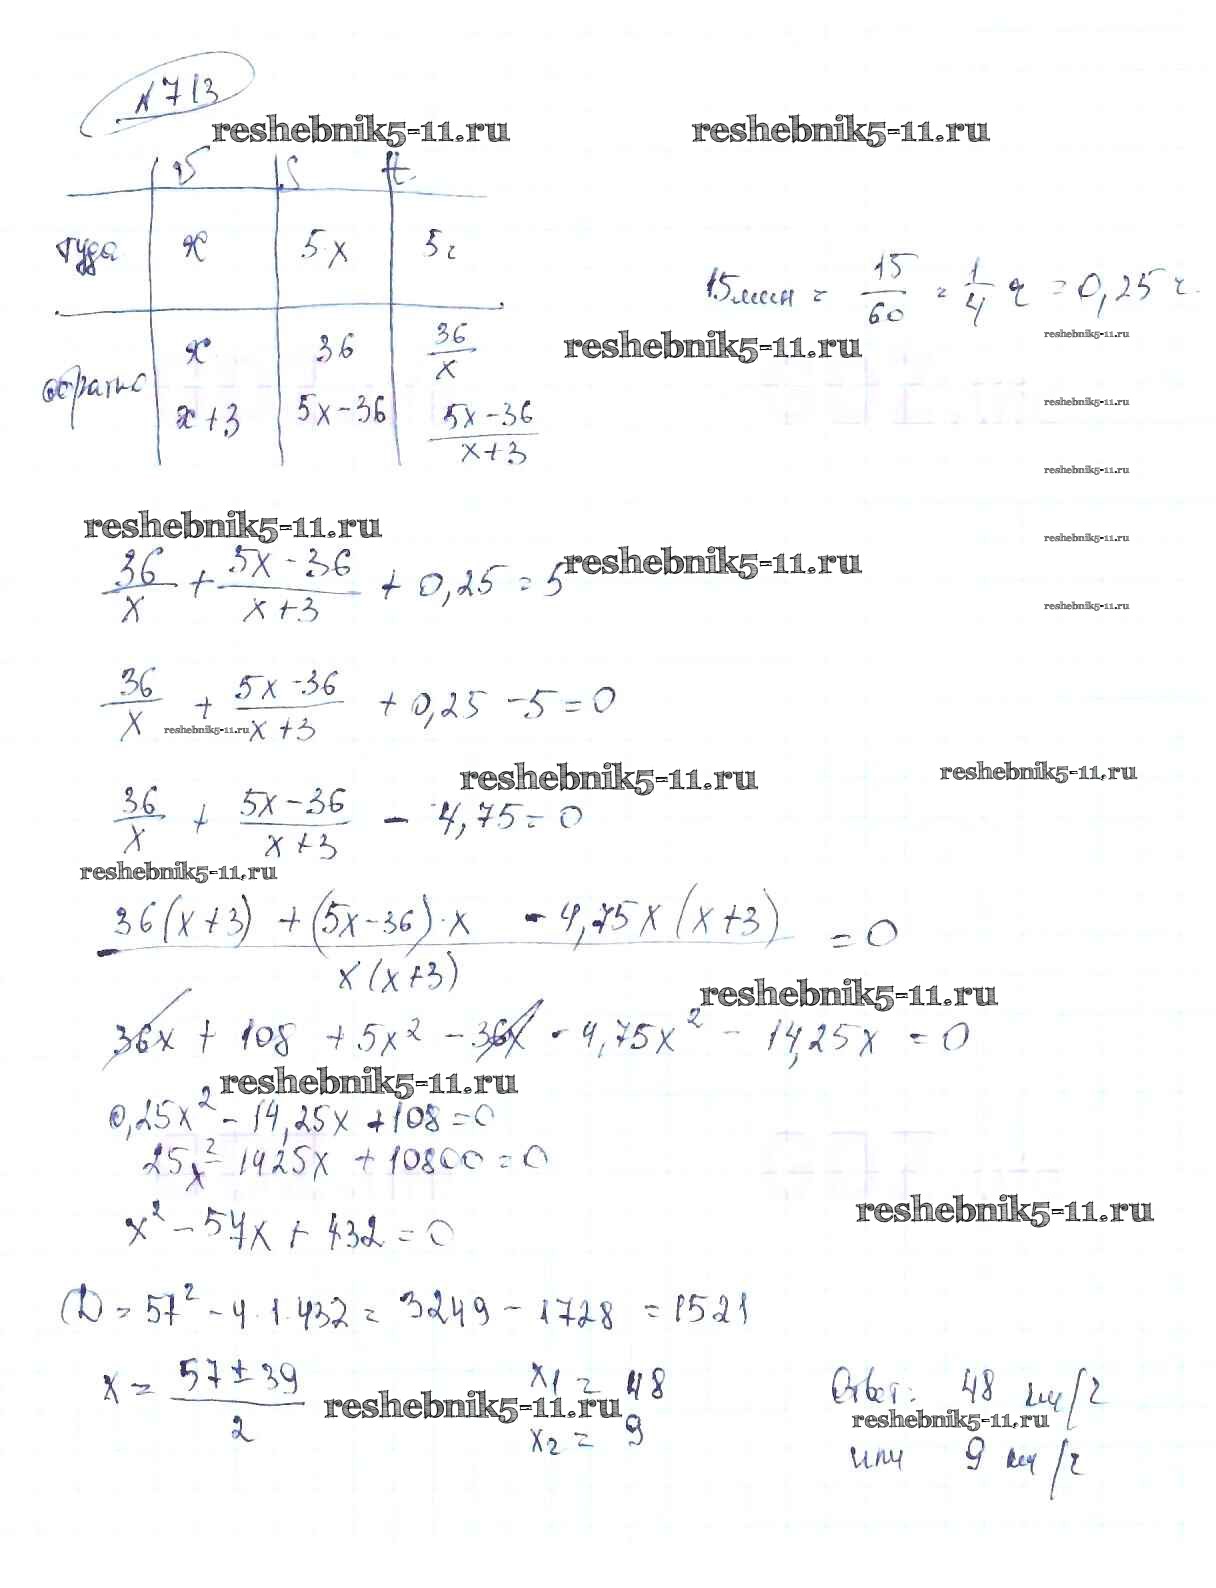 №713
reshebnik5-11.ru reshebnik5-11.ru
v S t
туда x 5x 5ч
15 мин = 15/60 = 1/4 ч = 0,25 ч.
reshebnik5-11.ru
reshebnik5-11.ru
обратно x 36 36/x
x+3 5x-36 (5x-36)/(x+3)
reshebnik5-11.ru
reshebnik5-11.ru
reshebnik5-11.ru
reshebnik5-11.ru
reshebnik5-11.ru
36/x + (5x-36)/(x+3) + 0,25 = 5
reshebnik5-11.ru
36/x + (5x-36)/(x+3) + 0,25 - 5 = 0
reshebnik5-11.ru
reshebnik5-11.ru reshebnik5-11.ru
36/x + (5x-36)/(x+3) - 4,75 = 0
reshebnik5-11.ru
(36(x+3) + (5x-36)·x - 4,75x(x+3))/(x(x+3)) = 0
reshebnik5-11.ru
36x + 108 + 5x² - 36x - 4,75x² - 14,25x = 0
reshebnik5-11.ru
0,25x² - 14,25x + 108 = 0
25x² - 1425x + 10800 = 0
reshebnik5-11.ru
x² - 57x + 432 = 0
D = 57² - 4·1·432 = 3249 - 1728 = 1521
x = (57 ± 39)/2 x₁ = 48 Ответ: 48 км/ч
reshebnik5-11.ru reshebnik5-11.ru
x₂ = 9 или 9 км/ч